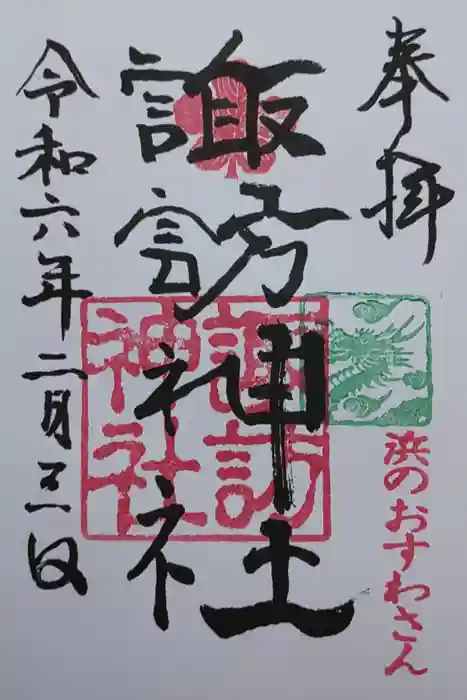 奉拝
浜のおすわさん
諏訪神社
諏訪神社
令和六年二月三日